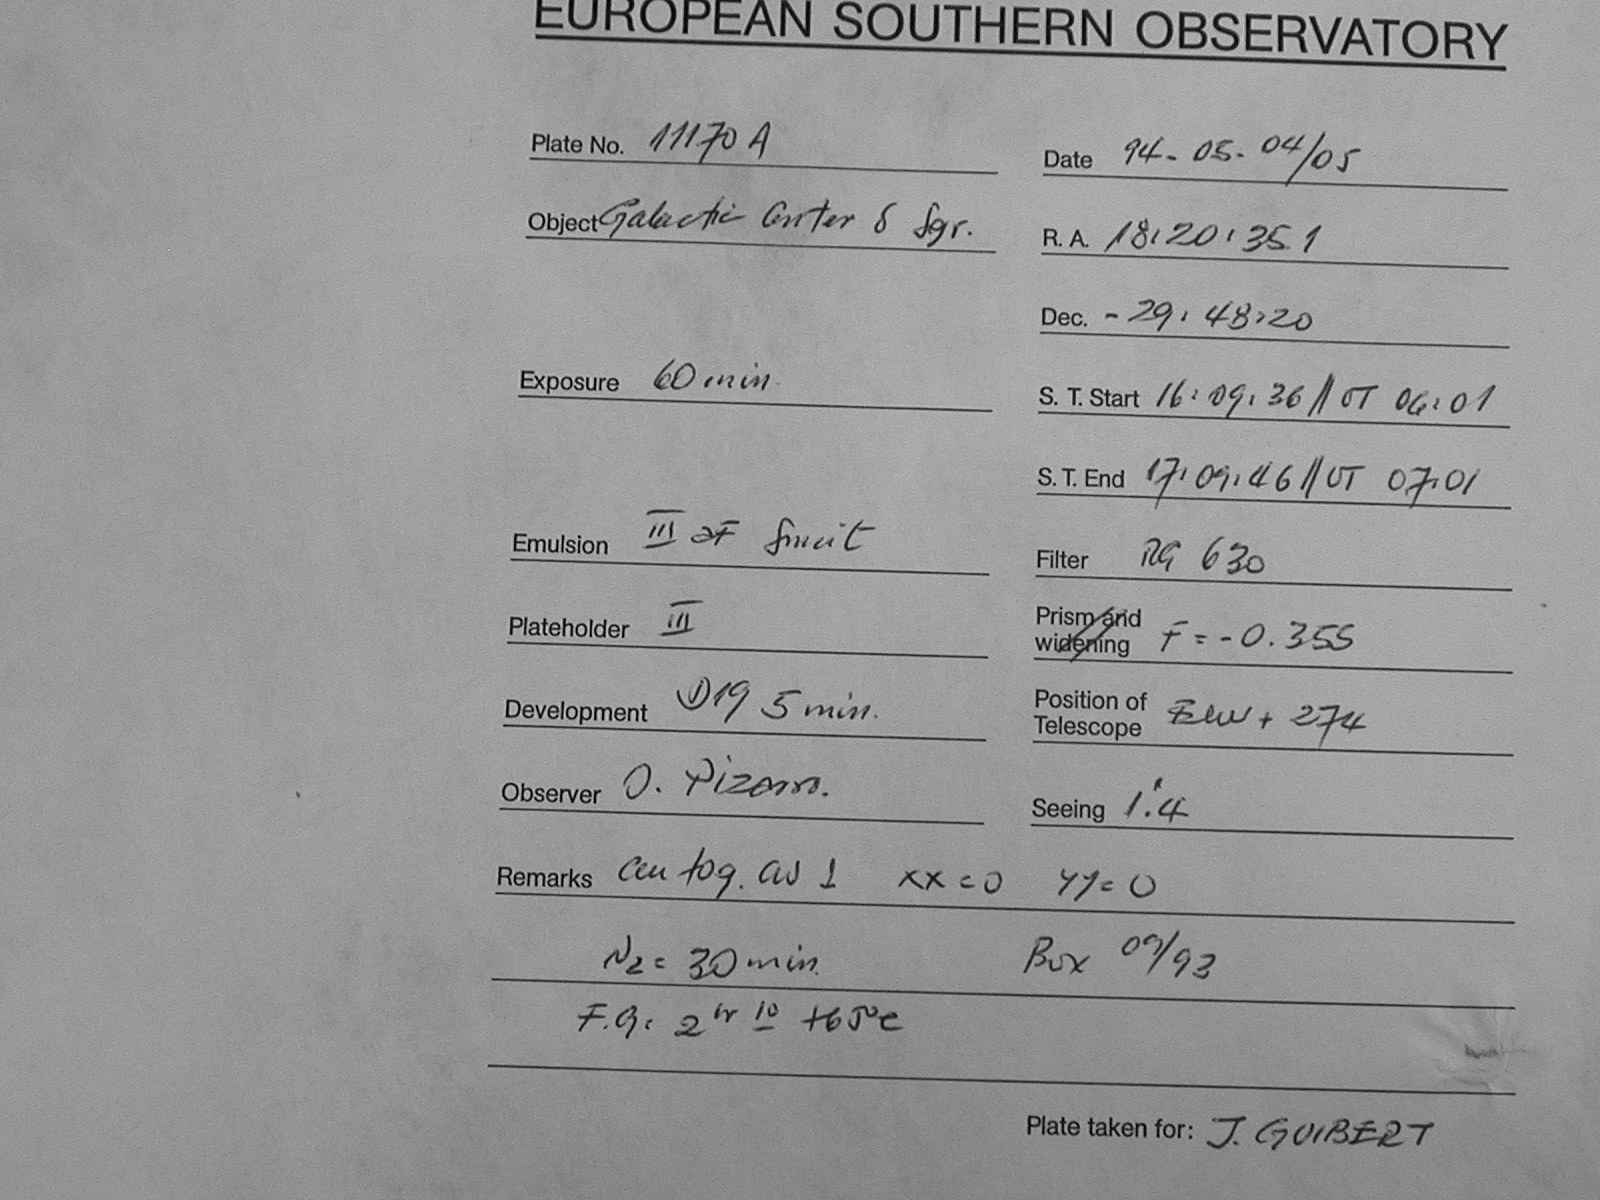 EUROPEAN SOUTHERN OBSERVATORY
Plate No. 11170 A
Date 94-05-04/05
Object Galactic Center δ Sgr.
R. A. 18:20:35.1
Dec. -29:48:20
Exposure 60 min.
S. T. Start 16:09:36 // UT 06:01
S. T. End 17:09:46 // UT 07:01
Emulsion III aF
Filter RG 630
Plateholder III
Prism and widening F = -0.355
Development D19 5 min.
Position of Telescope + 274
Observer O. Pizarro.
Seeing 1.4
Remarks xx = 0 yy = 0
N2 = 30 min. Box 09/93
F.G. 2 hr 10 +65°C
Plate taken for: J. GUIBERT